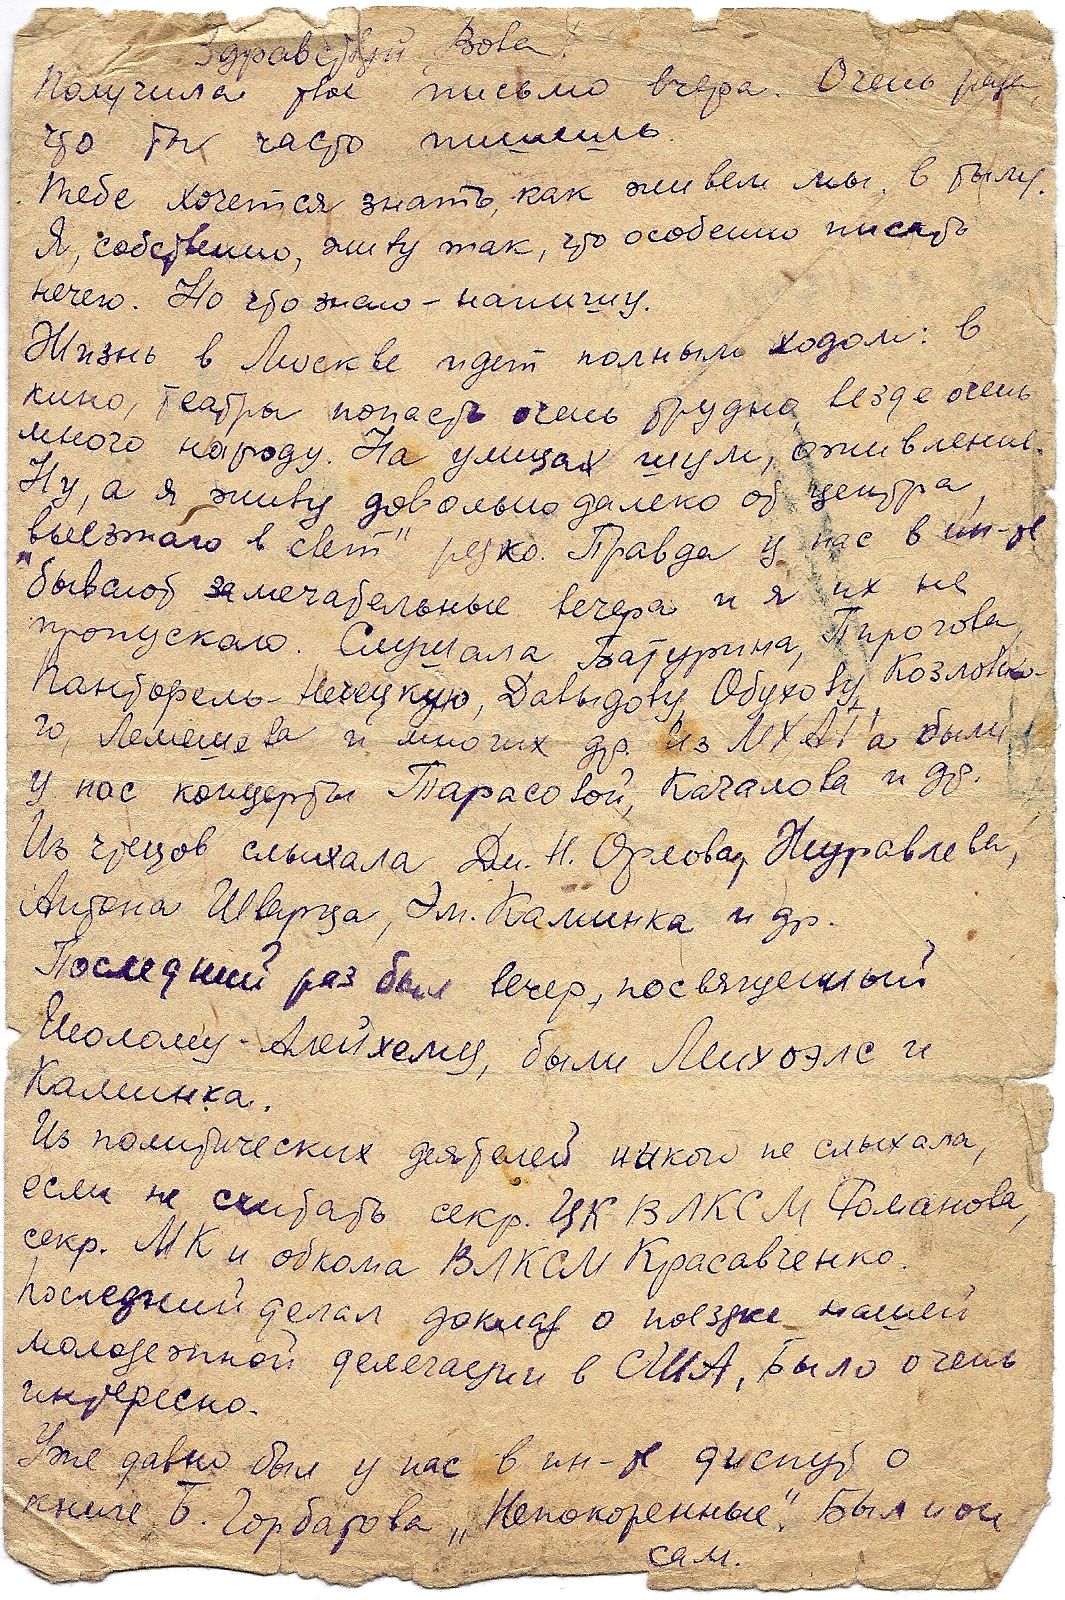 Здравствуй Вова!
Получила твое письмо вчера. Очень рада,
что ты часто пишешь.
Тебе хочется знать, как живем мы, в тылу.
Я, собственно, живу так, что особенно писать
нечего. Но что знаю - напишу.
Жизнь в Москве идет полным ходом: в
кино, театры попасть очень трудно, везде очень
много народу. На улицах шум, оживление.
Ну, а я живу довольно далеко от центра,
"выезжаю в свет" редко. Правда у нас в ин-те
бывают замечательные вечера и я их не
пропускаю. Слушала Батурина, Пирогова,
Пантофель-Нечецкую, Давыдову, Обухову, Козловско-
го, Лемешева и многих др. Из МХАТ'а были
у нас концерты Тарасовой, Качалова и др.
Из чтецов слыхала Дм. Н. Орлова, Журавлева,
Антона Шварца, Эм. Каминка и др.
Последний раз был вечер, посвященный
Шолому-Алейхему, были Михоэлс и
Каминка.
Из политических деятелей никого не слыхала,
если не считать секр. ЦК ВЛКСМ Романова,
секр. МК и обкома ВЛКСМ Красавченко.
Последний делал доклад о поездке нашей
молодежной делегации в США, Было очень
интересно.
Уже давно был у нас в ин-те диспут о
книге Б. Горбатова „Непокоренные". Был и он
сам.